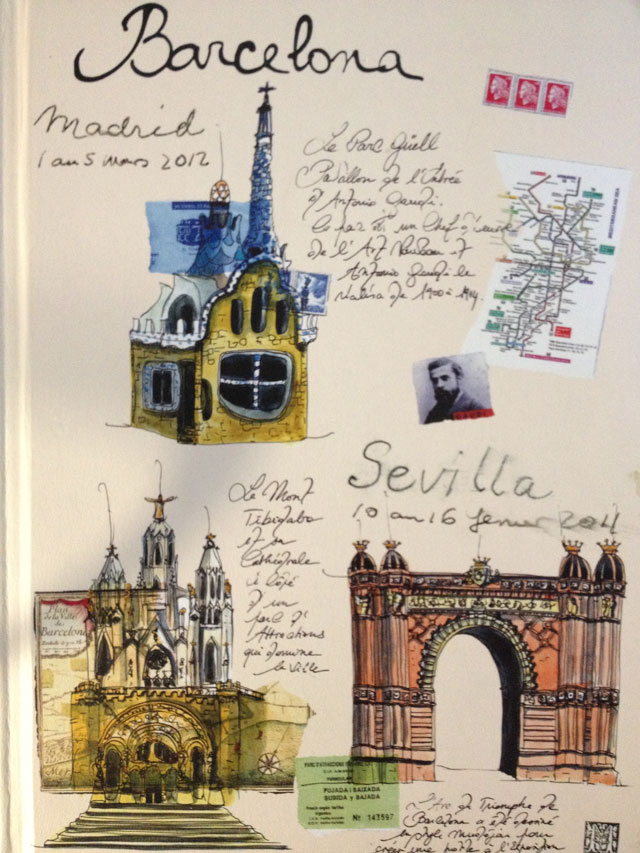 Barcelona
Madrid
1 au 5 mars 2012
Le Parc Güell
Pavillon de l'Entrée
d'Antonio Gaudi.
Le parc est un Chef d'œuvre
de l'Art Nouveau et
Antonio Gaudi le
réalisa de 1900 à 1914.
Sevilla
10 au 16 février 2011
Le Mont
Tibidabo
et sa
Cathédrale
à côté
d'un
parc d'
Attractions
qui domine
la ville
Plan
de la Ville
de
Barcelone
PUJADA i BAIXADA
SUBIDA y BAJADA
Nº 143597
L'Arc de Triomphe de
Barcelona a été
style mudéjar pour
créer une porte à l'Exposition